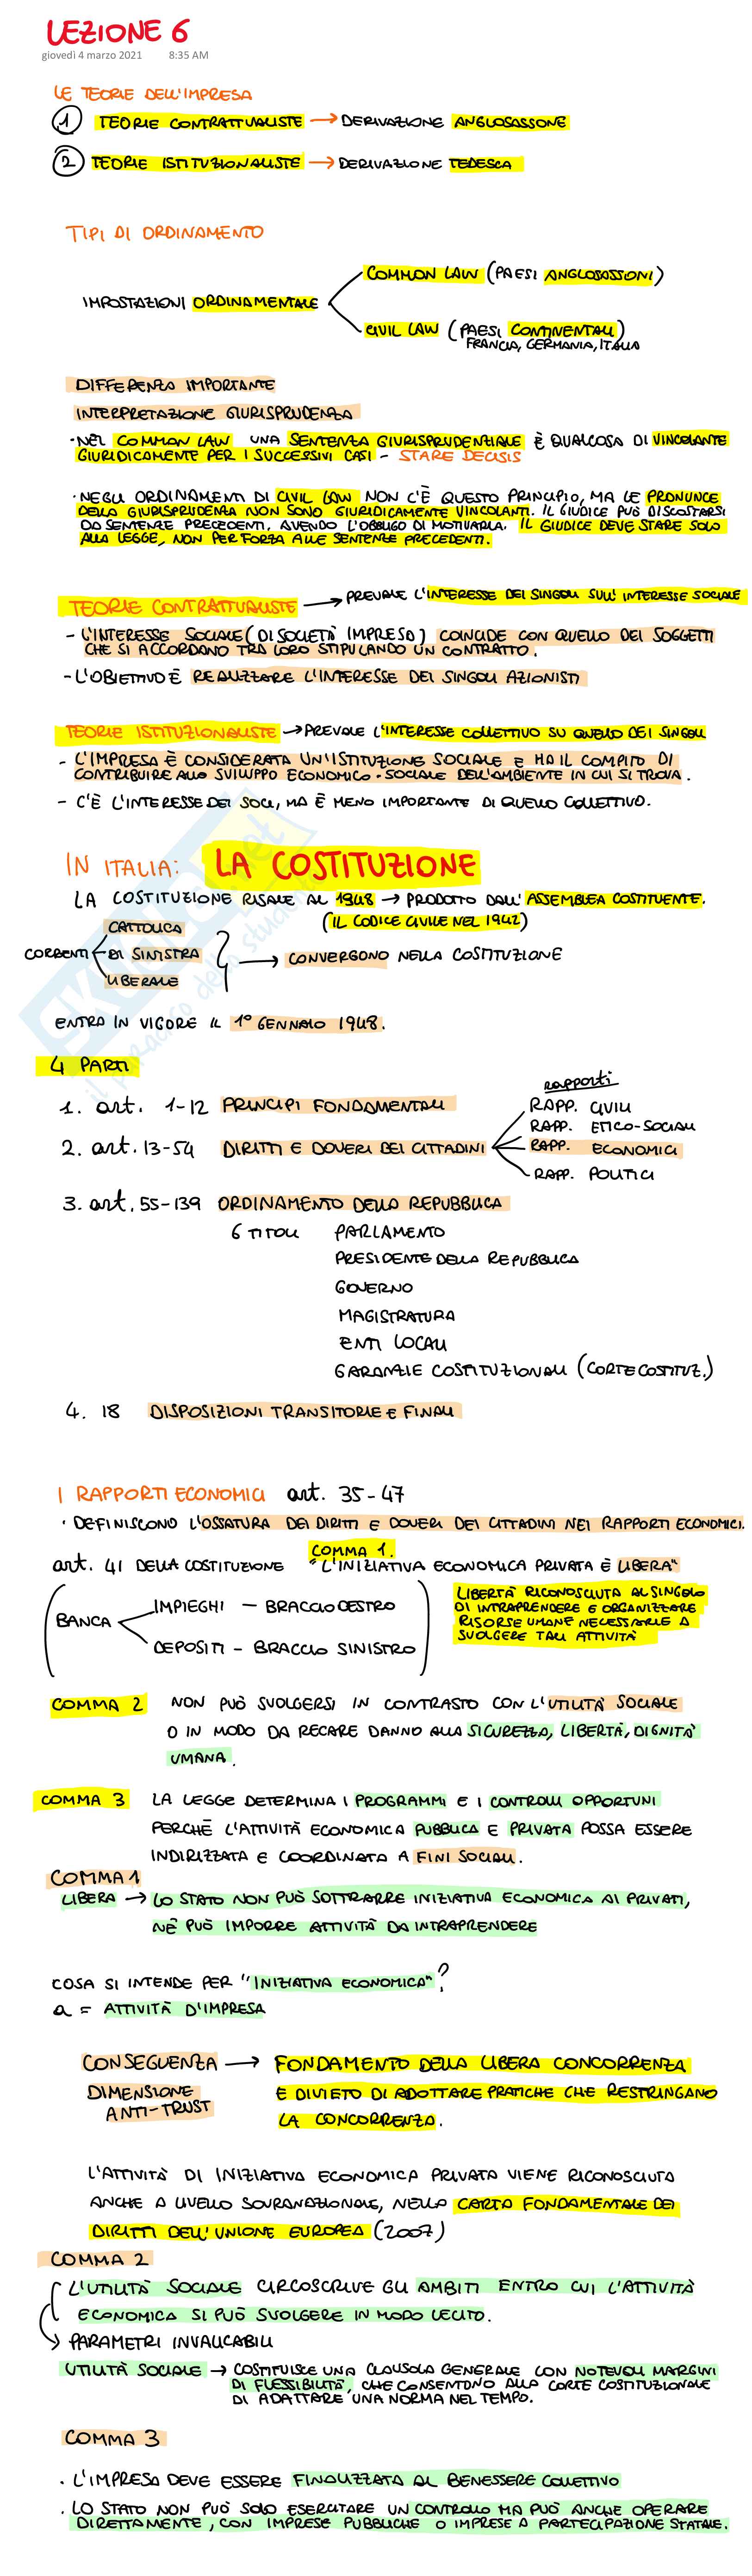 LEZIONE 6
giovedì 4 marzo 2021 8:35 AM
LE TEORIE DELL'IMPRESA
1 TEORIE CONTRATTUALISTE → DERIVAZIONE ANGLOSASSONE
2 TEORIE ISTITUZIONALISTE → DERIVAZIONE TEDESCA
TIPI DI ORDINAMENTO
COMMON LAW (PAESI ANGLOSASSONI)
IMPOSTAZIONI ORDINAMENTALE
CIVIL LAW (PAESI CONTINENTALI)
FRANCIA, GERMANIA, ITALIA
DIFFERENZA IMPORTANTE
INTERPRETAZIONE GIURISPRUDENZA
• NEL COMMON LAW UNA SENTENZA GIURISPRUDENZIALE È QUALCOSA DI VINCOLANTE
GIURIDICAMENTE PER I SUCCESSIVI CASI - STARE DECISIS
• NEGLI ORDINAMENTI DI CIVIL LAW NON C'È QUESTO PRINCIPIO, MA LE PRONUNCE
DELLA GIURISPRUDENZA NON SONO GIURIDICAMENTE VINCOLANTI. IL GIUDICE PUÒ DISCOSTARSI
DA SENTENZE PRECEDENTI, AVENDO L'OBBLIGO DI MOTIVARLA. IL GIUDICE DEVE STARE SOLO
ALLA LEGGE, NON PER FORZA ALLE SENTENZE PRECEDENTI.
TEORIE CONTRATTUALISTE → PREVALE L'INTERESSE DEI SINGOLI SULL'INTERESSE SOCIALE
- L'INTERESSE SOCIALE (DI SOCIETÀ IMPRESA) COINCIDE CON QUELLO DEI SOGGETTI
CHE SI ACCORDANO TRA LORO STIPULANDO UN CONTRATTO.
- L'OBIETTIVO È REALIZZARE L'INTERESSE DEI SINGOLI AZIONISTI
TEORIE ISTITUZIONALISTE → PREVALE L'INTERESSE COLLETTIVO SU QUELLO DEI SINGOLI
- L'IMPRESA È CONSIDERATA UN'ISTITUZIONE SOCIALE E HA IL COMPITO DI
CONTRIBUIRE ALLO SVILUPPO ECONOMICO-SOCIALE DELL'AMBIENTE IN CUI SI TROVA.
- C'È L'INTERESSE DEI SOCI, MA È MENO IMPORTANTE DI QUELLO COLLETTIVO.
IN ITALIA: LA COSTITUZIONE
LA COSTITUZIONE RISALE AL 1948 → PRODOTTO DALL'ASSEMBLEA COSTITUENTE.
(IL CODICE CIVILE NEL 1942)
CATTOLICA
CORRENTI DI SINISTRA → CONVERGONO NELLA COSTITUZIONE
LIBERALE
ENTRA IN VIGORE IL 1° GENNAIO 1948.
4 PARTI
rapporti
1. art. 1-12 PRINCIPI FONDAMENTALI
RAPP. CIVILI
RAPP. ETICO-SOCIALI
2. art. 13-54 DIRITTI E DOVERI DEI CITTADINI
RAPP. ECONOMICI
RAPP. POLITICI
3. art. 55-139 ORDINAMENTO DELLA REPUBBLICA
6 TITOLI PARLAMENTO
PRESIDENTE DELLA REPUBBLICA
GOVERNO
MAGISTRATURA
ENTI LOCALI
GARANZIE COSTITUZIONALI (CORTE COSTITUZ.)
4. 18 DISPOSIZIONI TRANSITORIE E FINALI
I RAPPORTI ECONOMICI art. 35-47
• DEFINISCONO L'OSSATURA DEI DIRITTI E DOVERI DEI CITTADINI NEI RAPPORTI ECONOMICI.
COMMA 1.
art. 41 DELLA COSTITUZIONE "L'INIZIATIVA ECONOMICA PRIVATA È LIBERA"
IMPIEGHI - BRACCIO DESTRO
BANCA
DEPOSITI - BRACCIO SINISTRO
LIBERTÀ RICONOSCIUTA AL SINGOLO
DI INTRAPRENDERE E ORGANIZZARE
RISORSE UMANE NECESSARIE A
SVOLGERE TALI ATTIVITÀ
COMMA 2 NON PUÒ SVOLGERSI IN CONTRASTO CON L'UTILITÀ SOCIALE
O IN MODO DA RECARE DANNO ALLA SICUREZZA, LIBERTÀ, DIGNITÀ
UMANA.
COMMA 3 LA LEGGE DETERMINA I PROGRAMMI E I CONTROLLI OPPORTUNI
PERCHÈ L'ATTIVITÀ ECONOMICA PUBBLICA E PRIVATA POSSA ESSERE
INDIRIZZATA E COORDINATA A FINI SOCIALI.
COMMA 1
LIBERA → LO STATO NON PUÒ SOTTRARRE INIZIATIVA ECONOMICA AI PRIVATI,
NÈ PUÒ IMPORRE ATTIVITÀ DA INTRAPRENDERE
COSA SI INTENDE PER "INIZIATIVA ECONOMICA"?
a = ATTIVITÀ D'IMPRESA
CONSEGUENZA → FONDAMENTO DELLA LIBERA CONCORRENZA
DIMENSIONE E DIVIETO DI ADOTTARE PRATICHE CHE RESTRINGANO
ANTI-TRUST LA CONCORRENZA.
L'ATTIVITÀ DI INIZIATIVA ECONOMICA PRIVATA VIENE RICONOSCIUTA
ANCHE A LIVELLO SOVRANAZIONALE, NELLA CARTA FONDAMENTALE DEI
DIRITTI DELL'UNIONE EUROPEA (2007)
COMMA 2
L'UTILITÀ SOCIALE CIRCOSCRIVE GLI AMBITI ENTRO CUI L'ATTIVITÀ
ECONOMICA SI PUÒ SVOLGERE IN MODO LECITO.
→ PARAMETRI INVALICABILI
UTILITÀ SOCIALE → COSTITUISCE UNA CLAUSOLA GENERALE CON NOTEVOLI MARGINI
DI FLESSIBILITÀ, CHE CONSENTONO ALLA CORTE COSTITUZIONALE
DI ADATTARE UNA NORMA NEL TEMPO.
COMMA 3
• L'IMPRESA DEVE ESSERE FINALIZZATA AL BENESSERE COLLETTIVO
• LO STATO NON PUÒ SOLO ESERCITARE UN CONTROLLO MA PUÒ ANCHE OPERARE
DIRETTAMENTE, CON IMPRESE PUBBLICHE O IMPRESE A PARTECIPAZIONE STATALE.